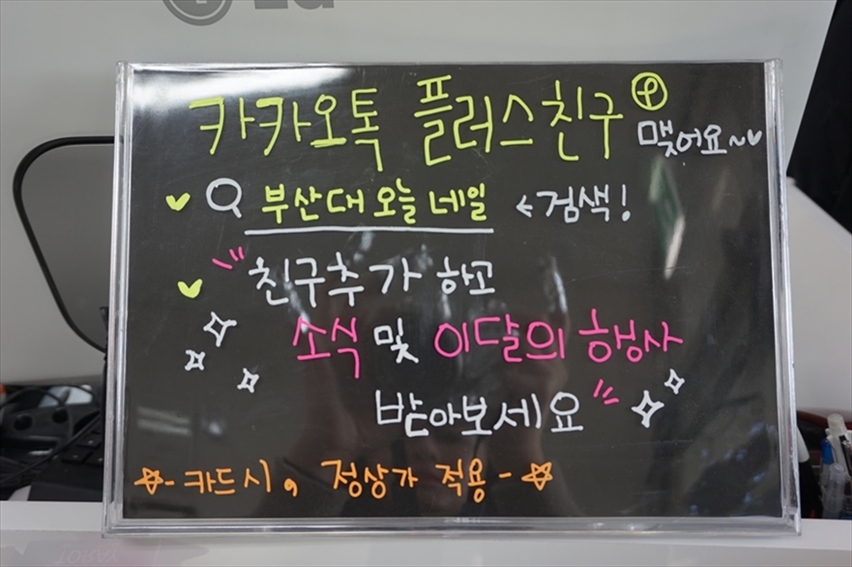 카카오톡 플러스친구 맺어요~
부산대 오늘 네일 ←검색!
"친구추가 하고
소식 및 이달의 행사
받아보세요"
-카드시, 정상가 적용-